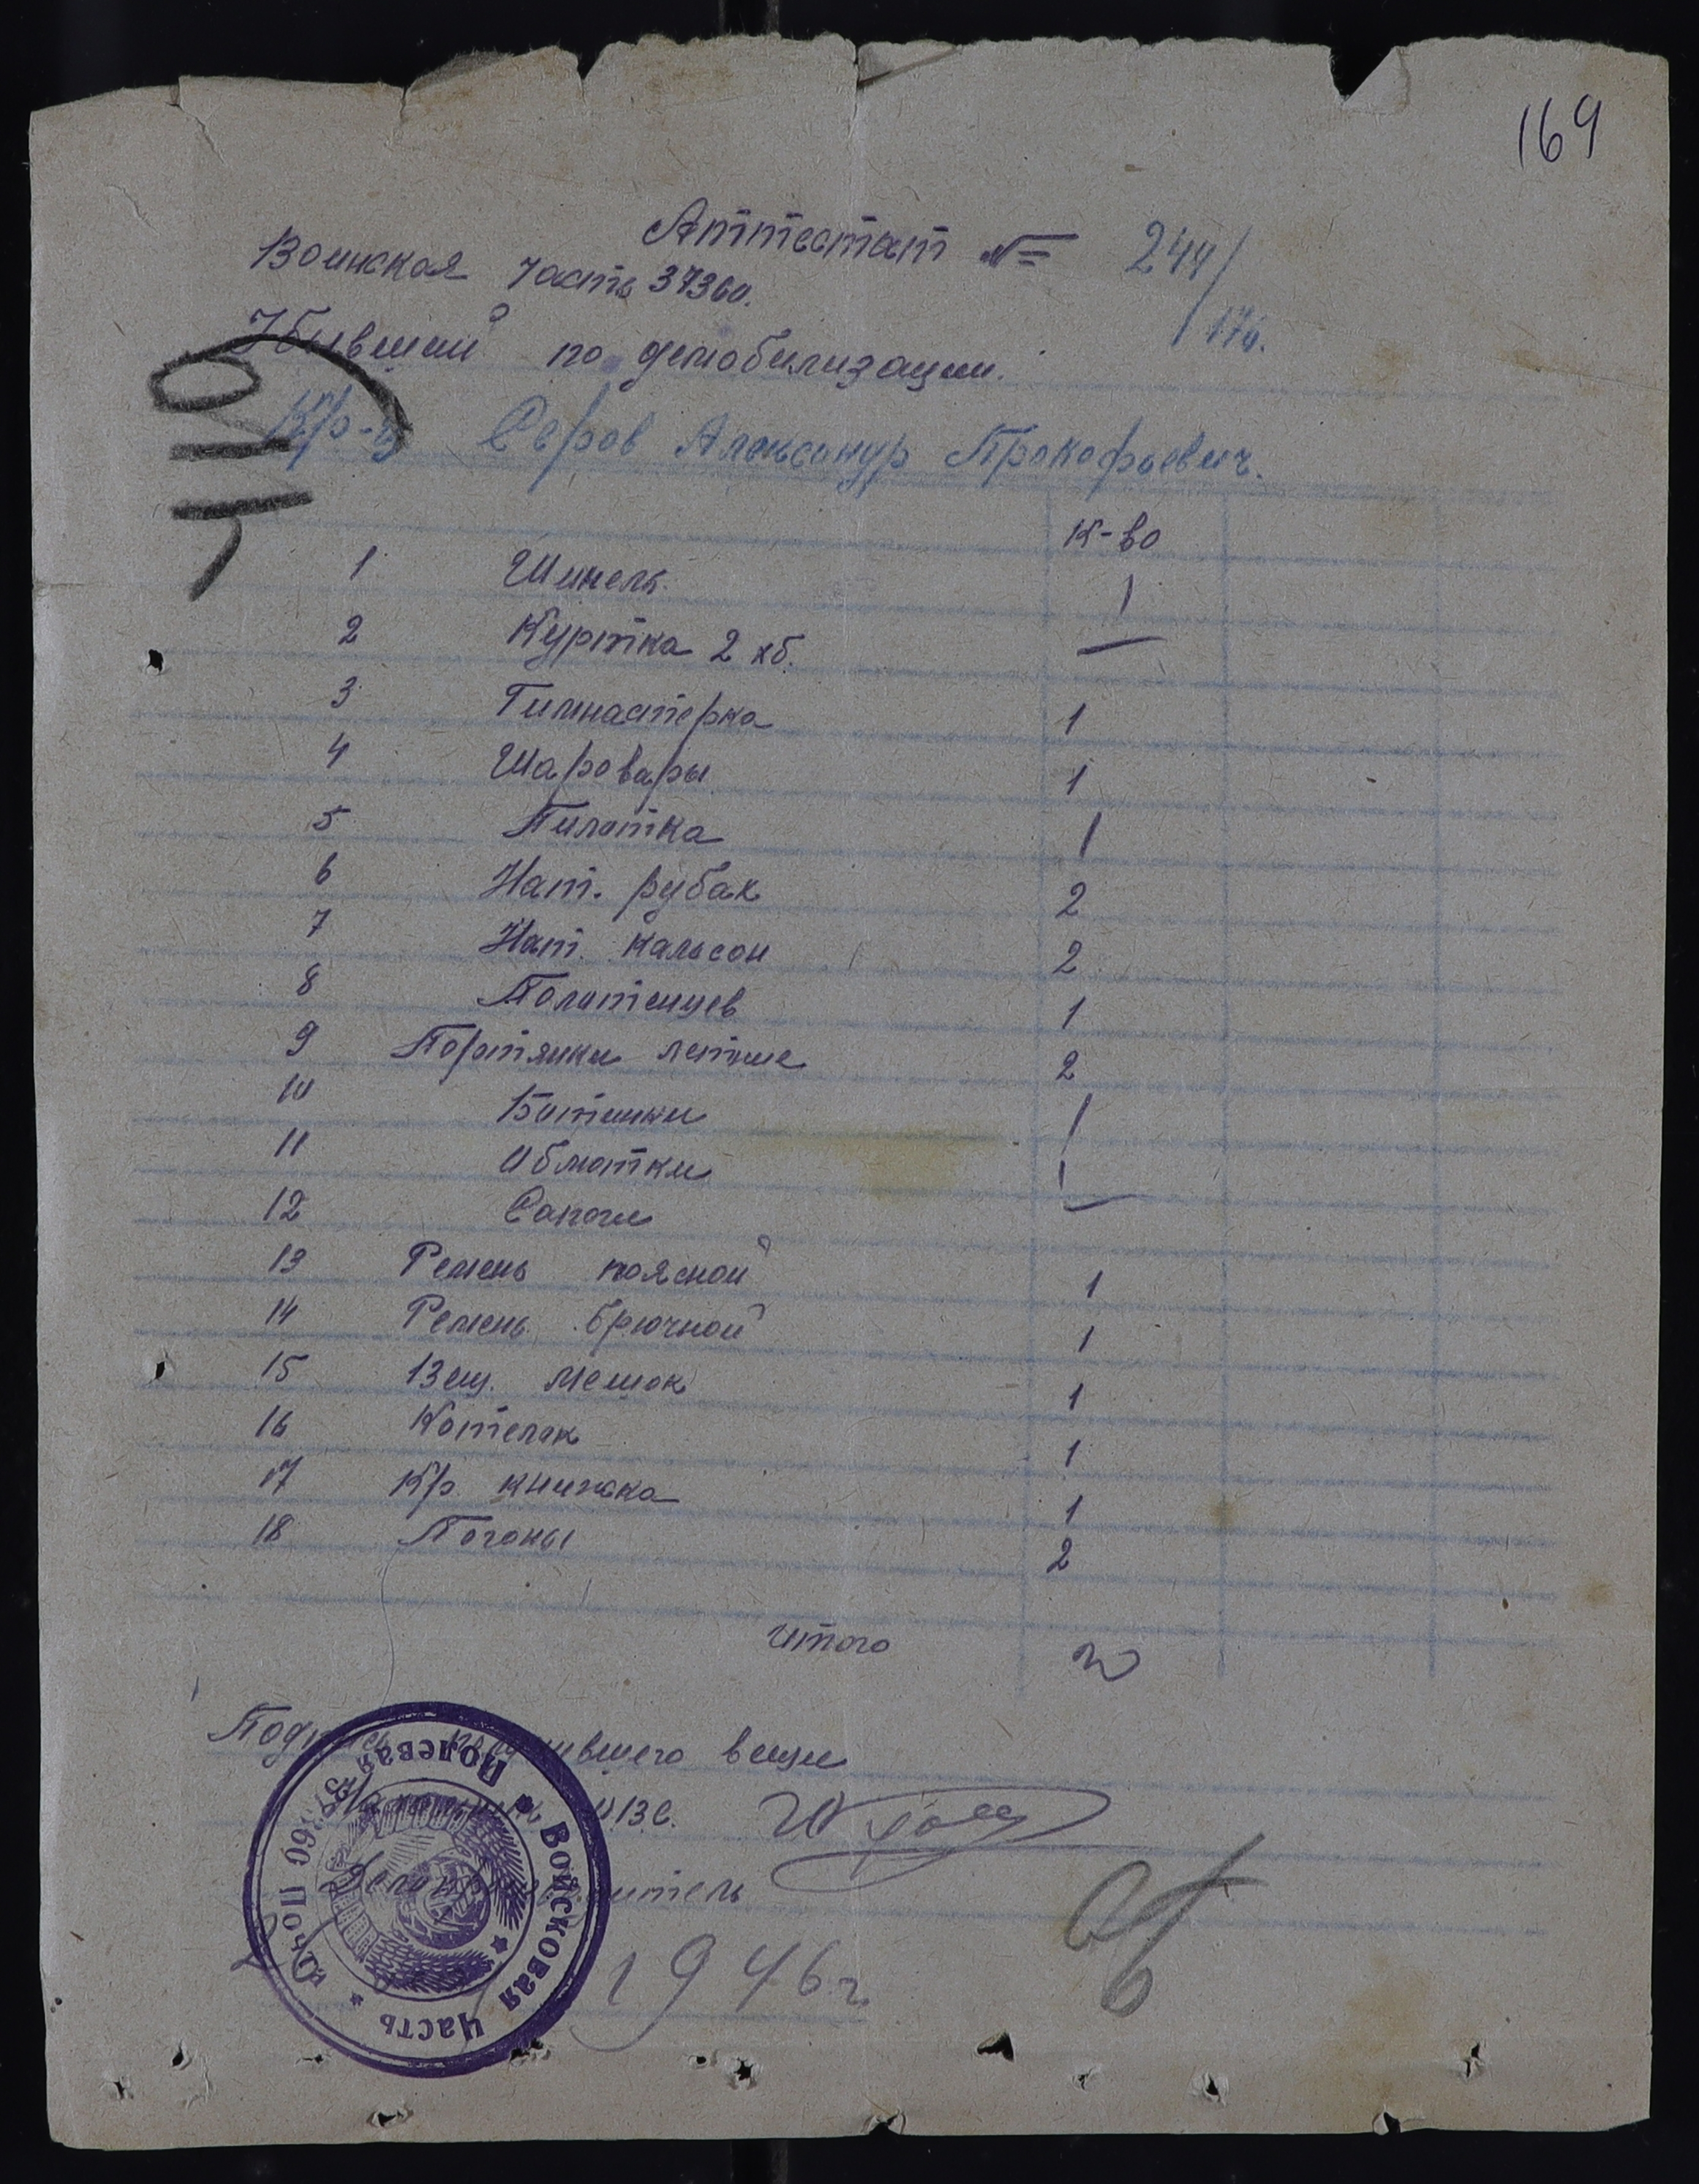 169
Аттестат № 244/176.
Воинская часть 37360.
Убывший по демобилизации.
Кр-ц Серов Александр Прокофьевич.
К-во
1 Шинель 1
2 Куртка 2 хб. —
3 Гимнастерка 1
4 Шаровары 1
5 Пилотка 1
6 Нат. рубах 2
7 Нат. кальсон 2
8 Полотенцев 1
9 Портянки летние 2
10 Ботинки 1
11 Обмотки 1
12 Сапоги —
13 Ремень поясной 1
14 Ремень брючной 1
15 Вещ. мешок 1
16 Котелок 1
17 Кр. книжка 1
18 Погоны 2
Итого
Подпись получившего вещи
Начальник ОВС.
Делопроизводитель
1946 г.
Войсковая часть * Полевая почта